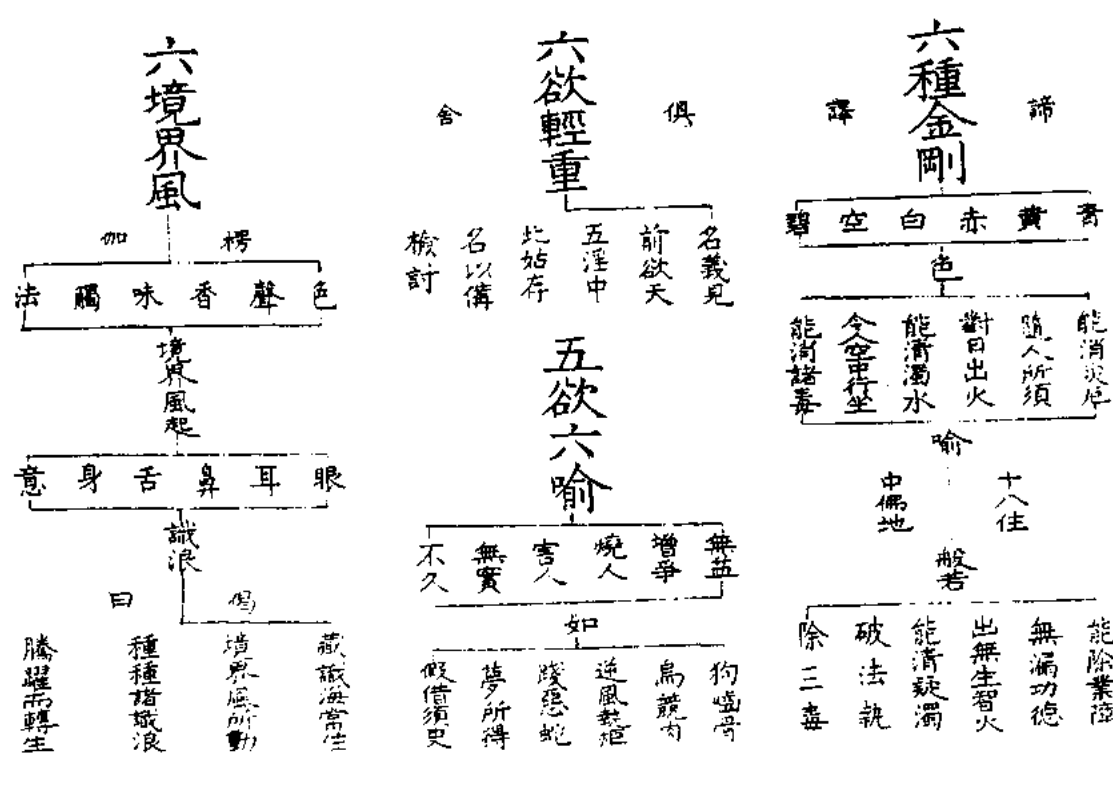 六種金剛
諦
譯
青
黃
赤
白
空
碧
色
能消災厄
隨人所須
對日出火
能清濁水
令人空中行坐
能消諸毒
喻
十八住
中偏地
般若
能除業障
無漏功德
出無生智火
能清疑濁
破法執
除三毒
六欲輕重
俱
舍
名義見
前欲天
五淫中
此姑存
名以備
檢討
五欲六喻
無益
增爭
燒人
害人
無實
不久
如
狗嚙骨
鳥競肉
逆風執炬
踐惡蛇
夢所得
假借須臾
六境界風
楞
伽
色
聲
香
味
觸
法
境界風起
眼
耳
鼻
舌
身
意
識浪
偈
曰
藏識海常住
境界風所動
種種諸識浪
騰躍而轉生